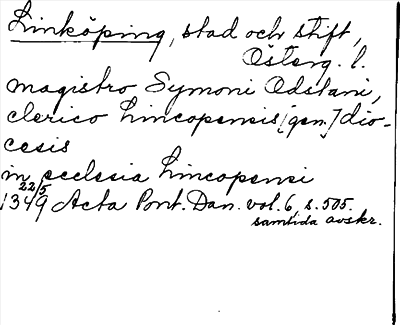 Linköping, stad och stift,
Österg. l.
magistro Symoni Odstani,
clerico Lincopensis [gen.] dio-
cesis
in ecclesia Lincopensi
22/5
1349 Acta Pont. Dan. vol. 6, s. 505.
samtida avskr.